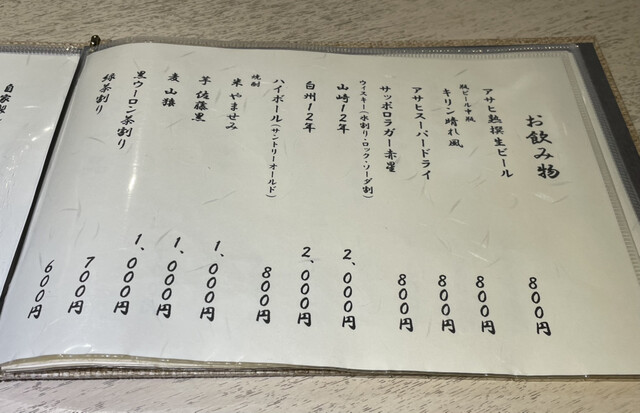 お飲み物
アサヒ熟撰生ビール 800円
瓶ビール中瓶
キリン晴れ風 800円
アサヒスーパードライ 800円
サッポロラガー赤星 800円
ウィスキー(水割り・ロック・ソーダ割)
山崎12年 2、000円
白州12年 2、000円
ハイボール(サントリーオールド) 800円
焼酎
米 やませみ 1、000円
芋 佐藤黒 1、000円
麦 山猿 1、000円
黒ウーロン茶割り 700円
緑茶割り 600円
自家製